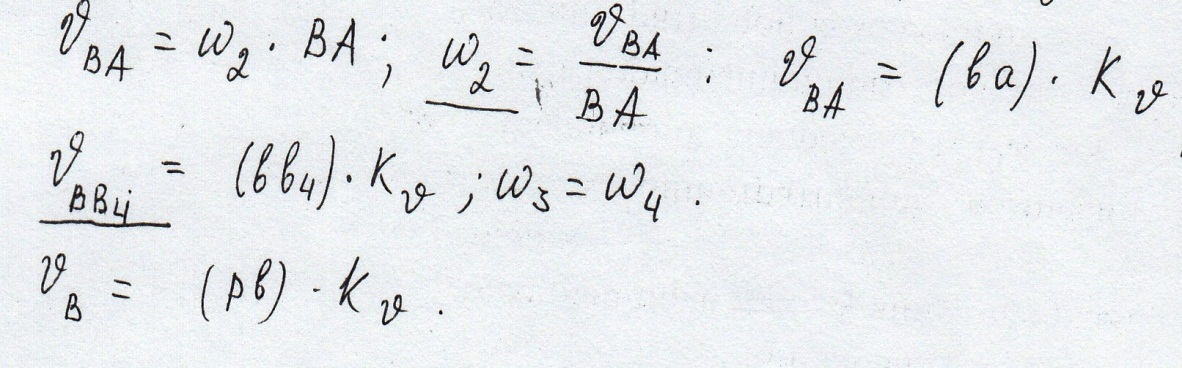 𝜗_BA = ω_2 · BA; ω_2 = 𝜗_BA / BA : 𝜗_BA = (ва) · K_𝜗
𝜗_BB4 = (вв_4) · K_𝜗; ω_3 = ω_4.
𝜗_B = (рв) · K_𝜗.